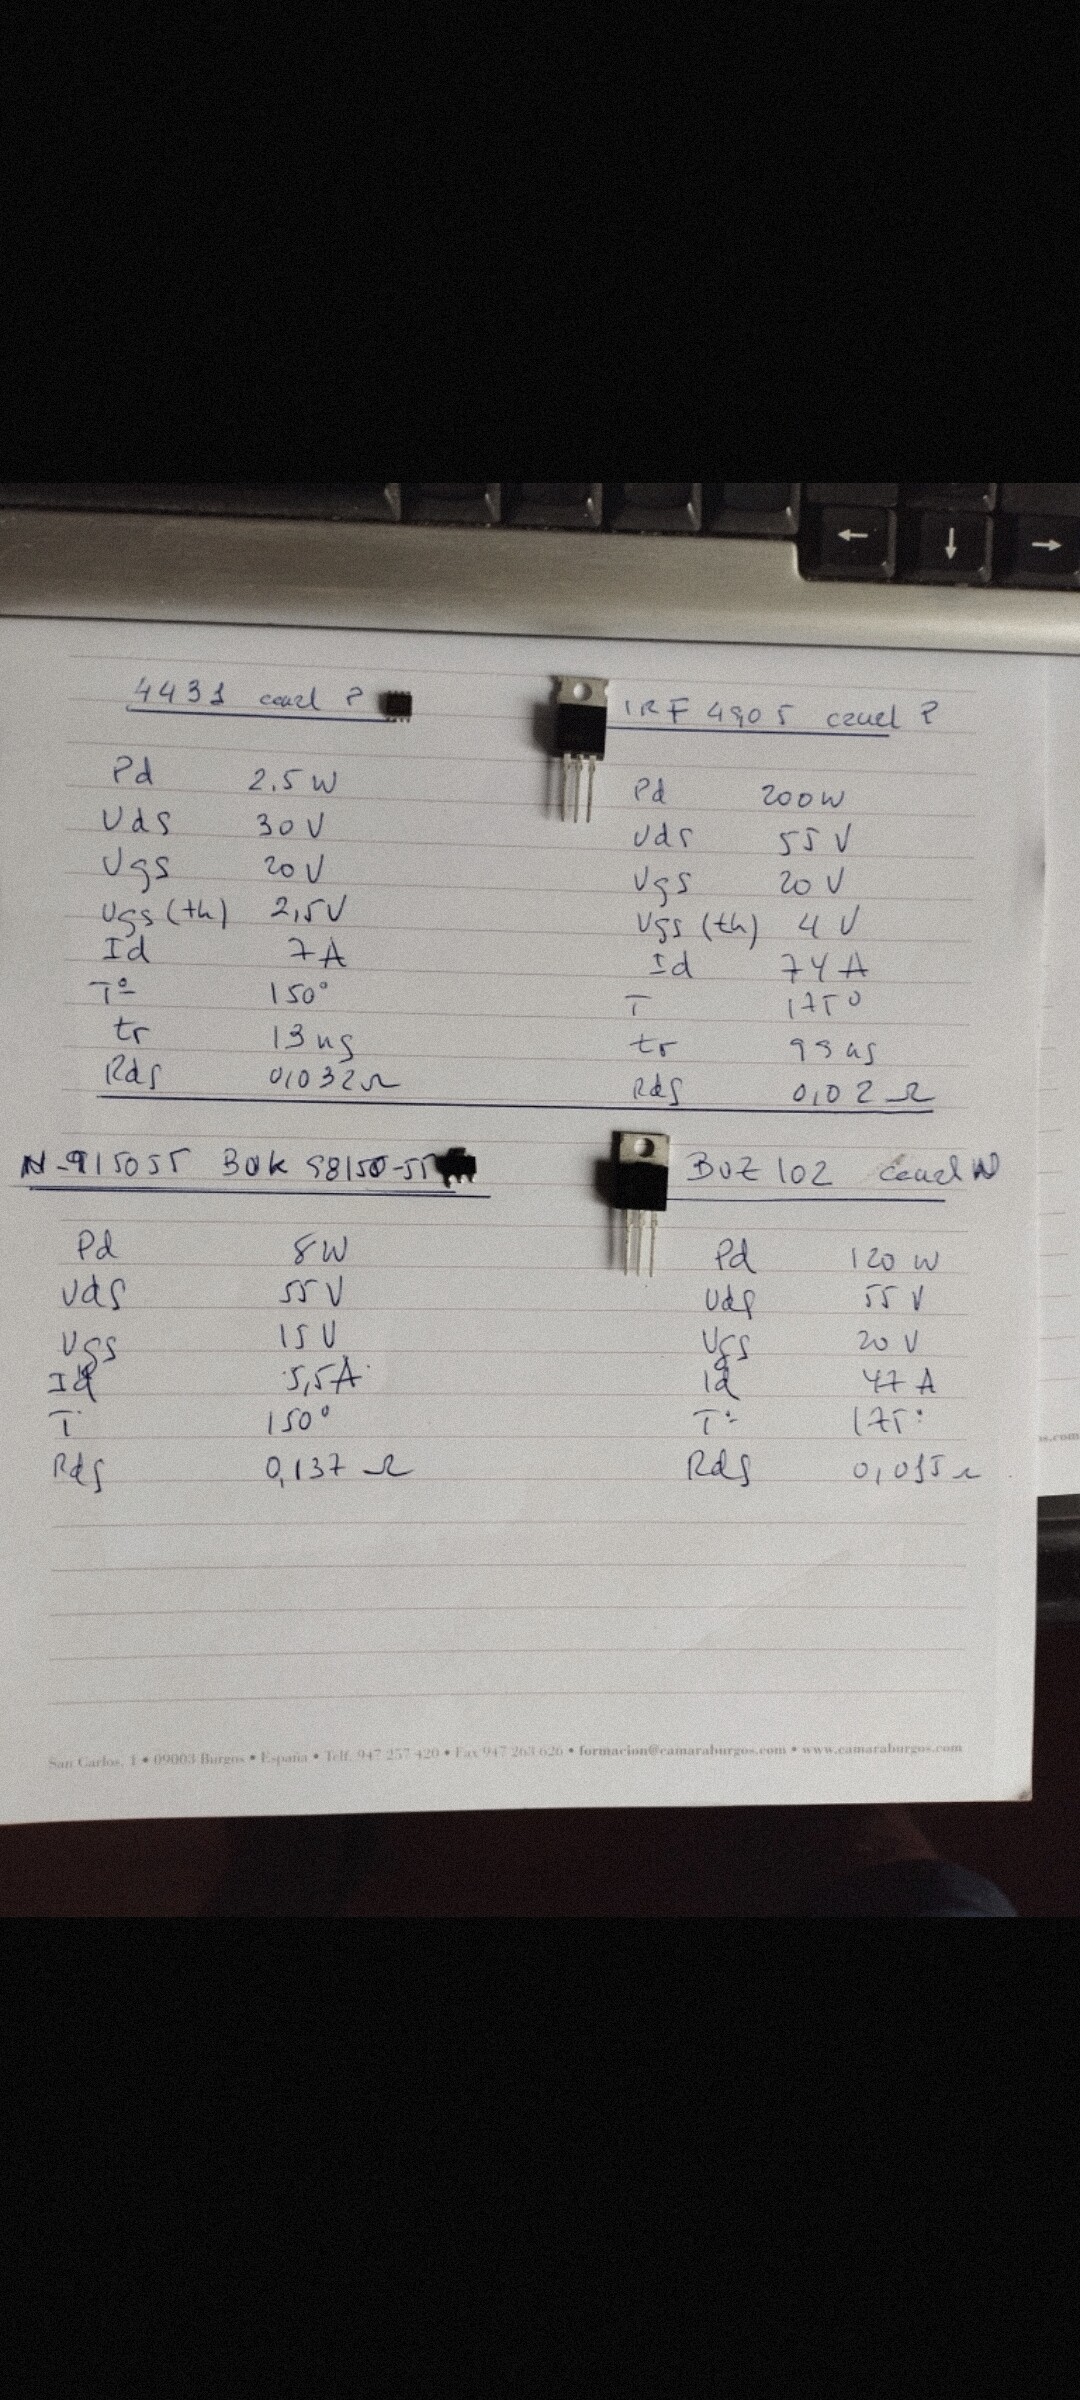 4431 canal P
Pd 2,5 W
Vds 30 V
Vgs 20 V
Vgs (th) 2,5 V
Id 7 A
Tº 150°
tr 13 ns
Rds 0,032 Ω
IRF 4905 canal P
Pd 200 W
Vds 55 V
Vgs 20 V
Vgs (th) 4 V
Id 74 A
T 175°
tr 99 ns
Rds 0,02 Ω
N-915055 BUK 98150-55
Pd 8 W
Vds 55 V
Vgs 15 V
Id 5,5 A
T 150°
Rds 0,137 Ω
BUZ 102 canal N
Pd 120 W
Vds 55 V
Vgs 20 V
Id 47 A
Tº 175°
Rds 0,015 Ω
San Carlos, 1 • 09003 Burgos • España • Telf. 947 257 420 • Fax 947 263 626 • formacion@camaraburgos.com • www.camaraburgos.com